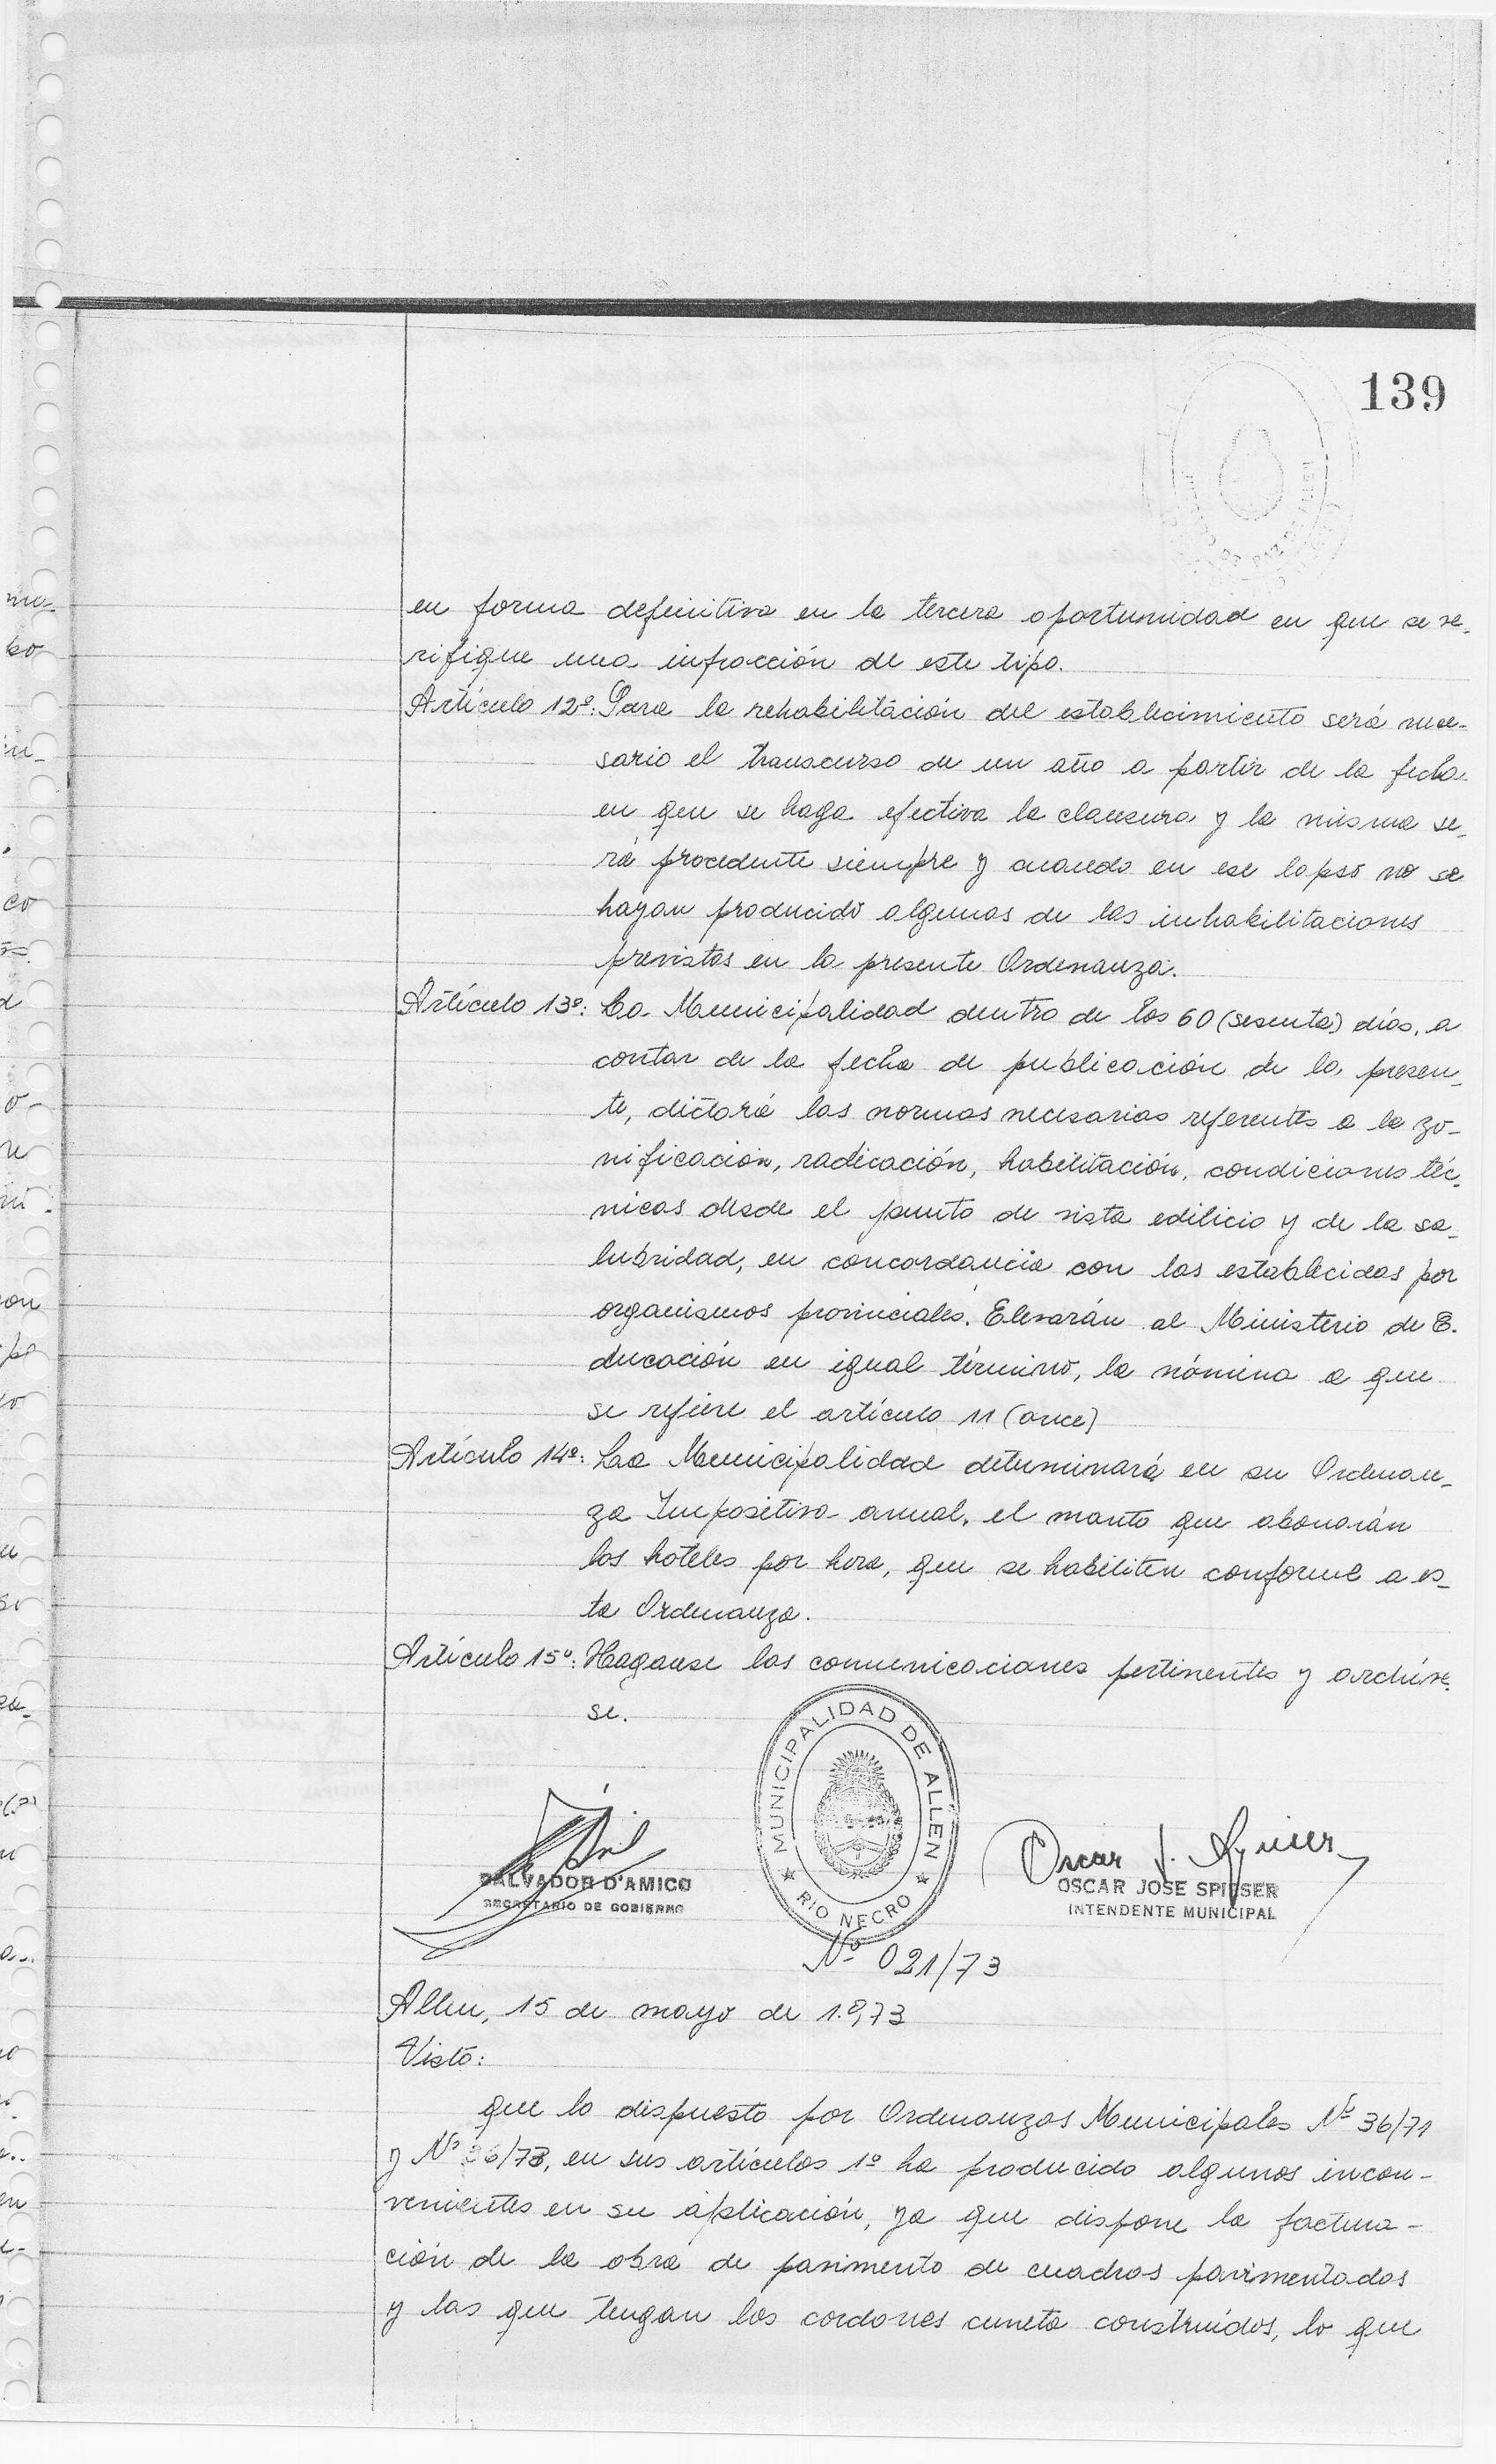 139
en forma definitiva en la tercera oportunidad en que se ve-
rifique una infracción de este tipo.
Artículo 12º: Para la rehabilitación del establecimiento será nece-
sario el transcurso de un año a partir de la fecha
en que se haga efectiva la clausura y la misma se-
rá procedente siempre y cuando en ese lapso no se
hayan producido algunas de las inhabilitaciones
previstas en la presente Ordenanza.
Artículo 13º: La Municipalidad dentro de los 60 (sesenta) días, a
contar de la fecha de publicación de la presen-
te, dictará las normas necesarias referentes a la zo-
nificación, radicación, habilitación, condiciones téc-
nicas desde el punto de vista edilicio y de la sa-
lubridad, en concordancia con las establecidas por
organismos provinciales. Elevarán al Ministerio de E-
ducación en igual término, la nómina a que
se refiere el artículo 11 (once)
Artículo 14º: La Municipalidad determinará en su Ordenan-
za Impositiva anual, el monto que abonarán
los hoteles por hora, que se habiliten conforme a es-
ta Ordenanza.
Artículo 15º: Haganse las comunicaciones pertinentes y archíve-
se.
MUNICIPALIDAD DE ALLEN
RIO NEGRO
SALVADOR D'AMICO
SECRETARIO DE GOBIERNO
Oscar J.
OSCAR JOSE SPIESER
INTENDENTE MUNICIPAL
Nº 021/73
Allen, 15 de mayo de 1.973
Visto:
que lo dispuesto por Ordenanzas Municipales Nº 36/71
y Nº 36/73, en sus artículos 1º ha producido algunos incon-
venientes en su aplicación, ya que dispone la factura-
ción de la obra de pavimento de cuadras pavimentadas
y las que tengan los cordones cuneta construídos, lo que